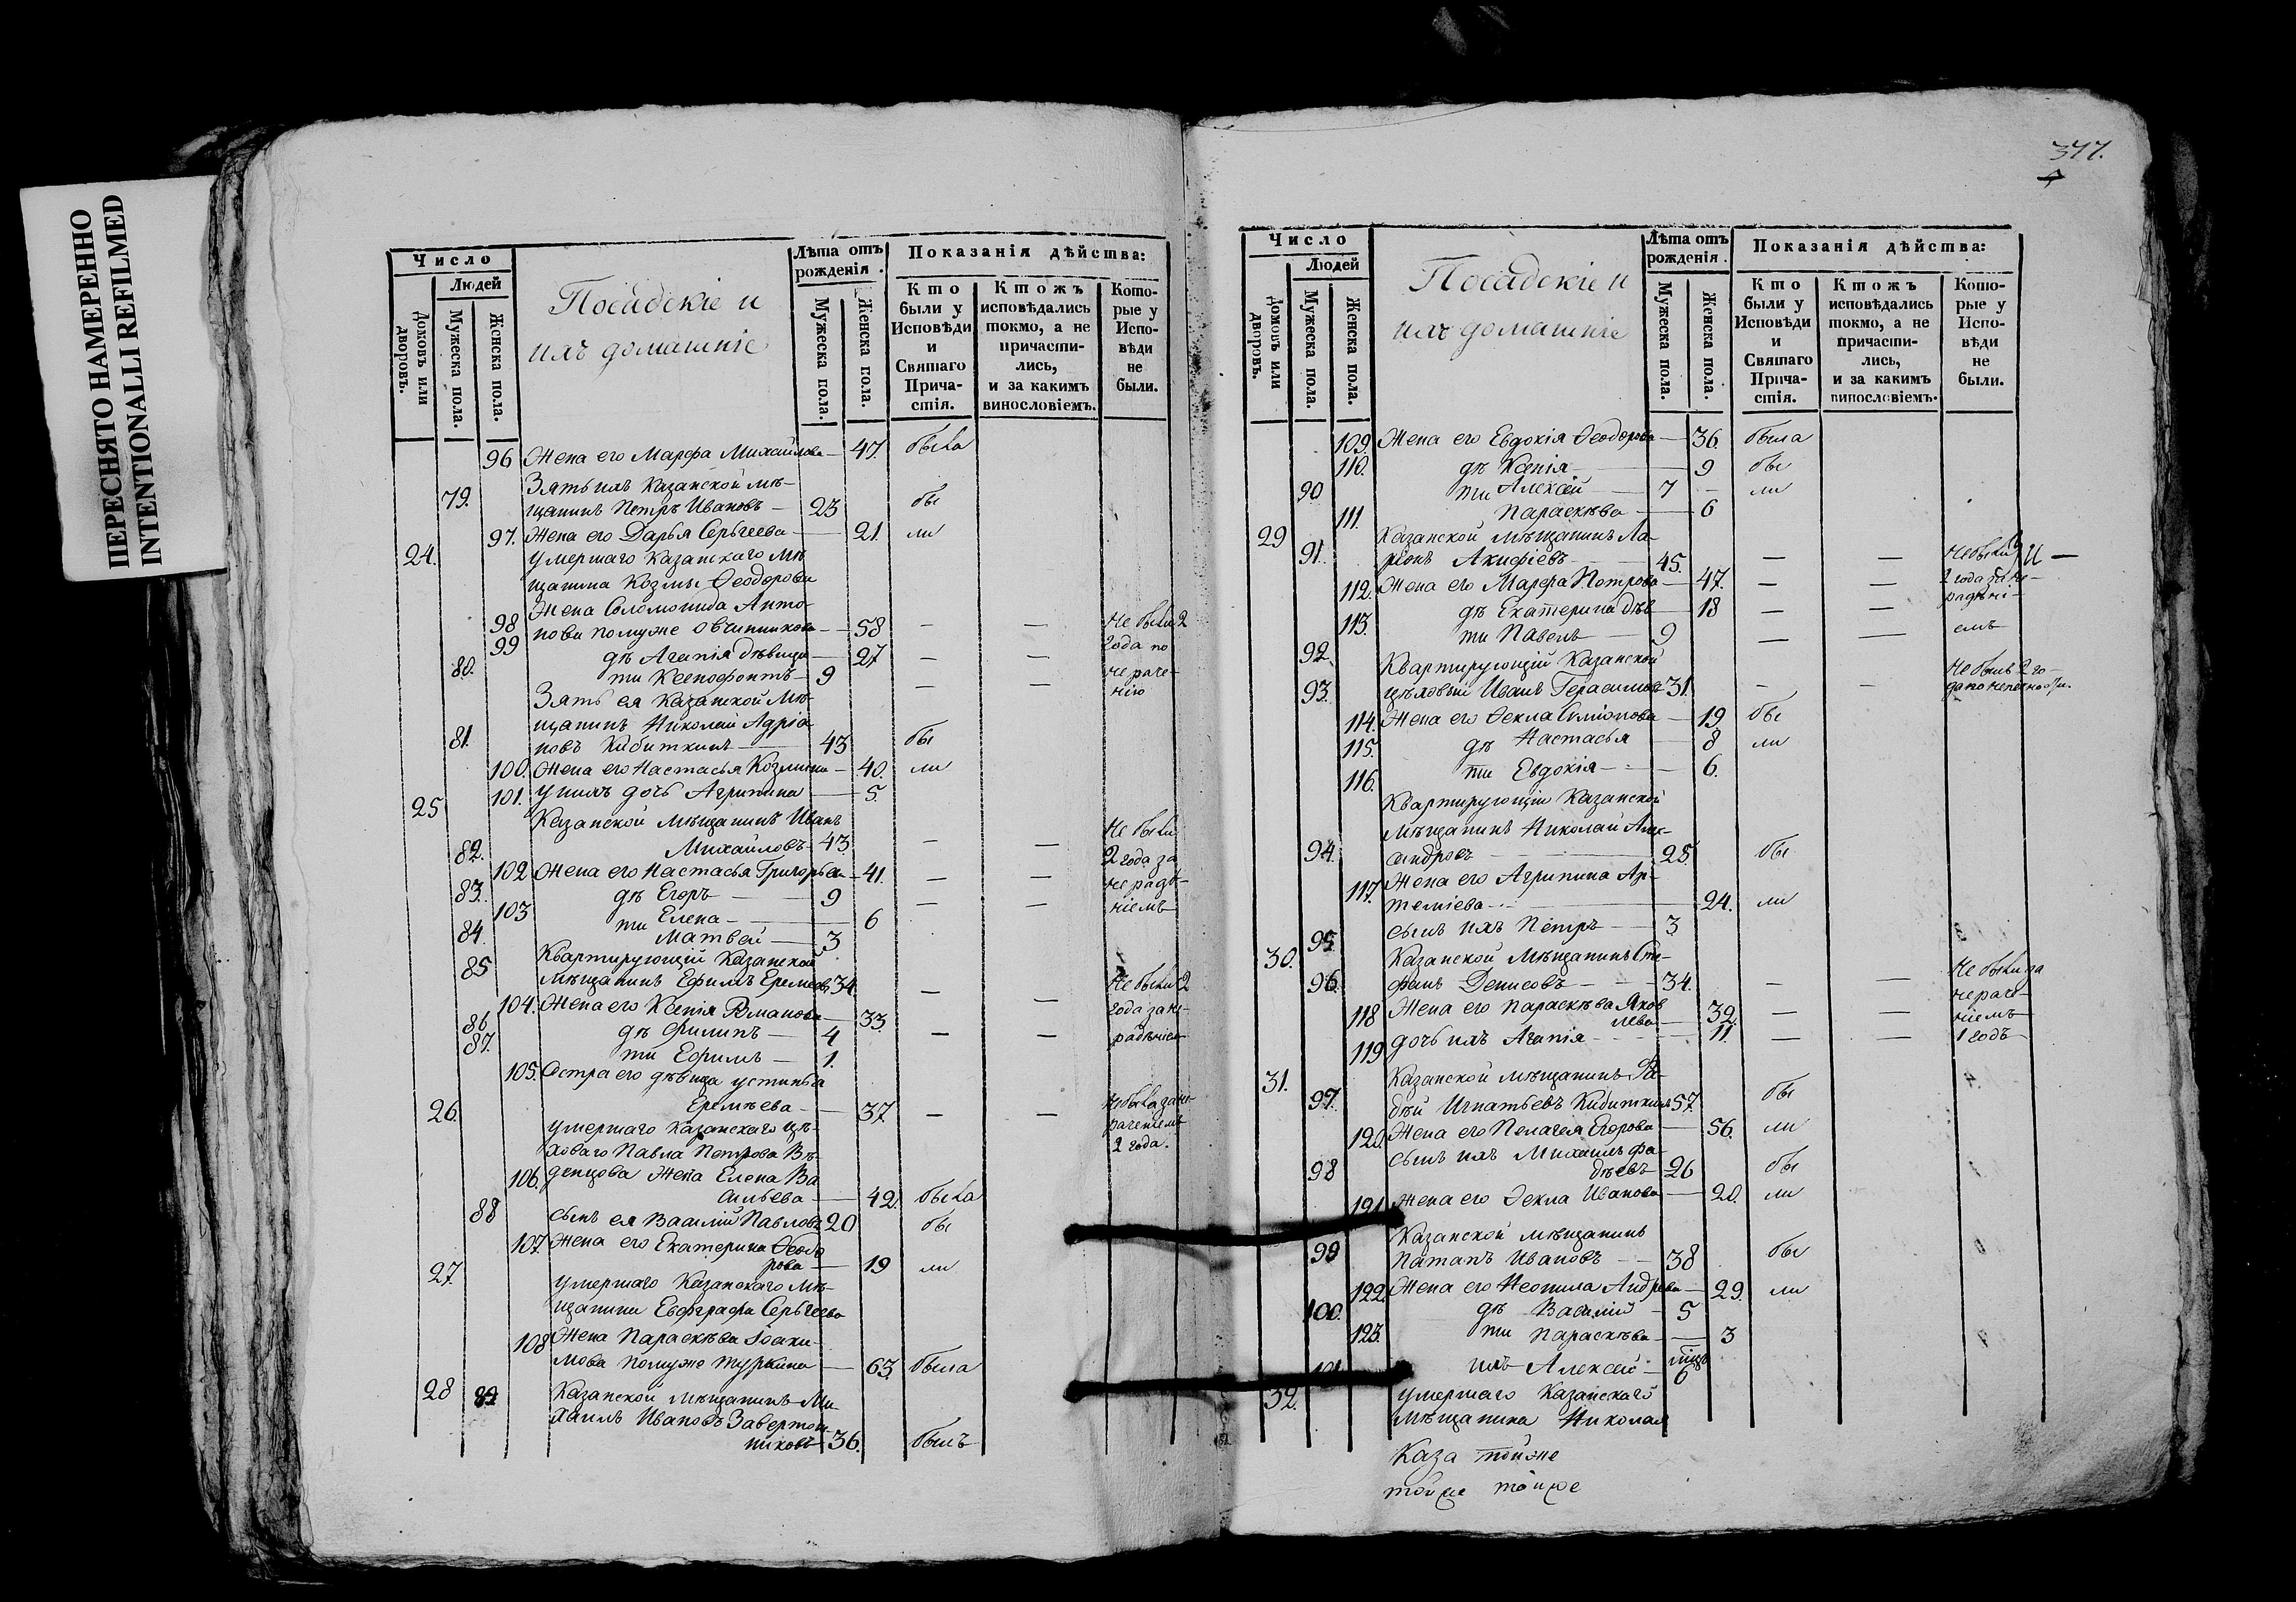 ПЕРЕСНЯТО НАМЕРЕННО
INTENTIONALLI REFILMED
Число
Людей
Домовъ или дворовъ.
Мужеска пола.
Женска пола.
Посадскіе и
ихъ домашніе
Лѣта отъ рожденія.
Мужеска пола.
Женска пола.
Показанія дѣйства:
Кто были у Исповѣди и Святаго Прича- стія.
Ктожъ исповѣдались токмо, а не причасти- лись, и за какимъ винословіемъ.
Кото- рые у Испо- вѣди не были.
96 Жена его Марфа Михайлова — 47. была
Зять ихъ Казанской мѣ-
79. щанинъ Петръ Ивановъ — 23 бы
97. Жена его Дарья Сергѣева — 21. ли
24. умершаго Казанскаго мѣ
щанина Козмы Ѳеодорова
Жена Соломонида Анто-
98 нова по муже Овчинникова — 58 — — не были 2
99 дѣ Агапія дѣвица — 27 — — года по
80. ти Ксенофонтъ — 9 — — нераче-
нію
Зять ея Казанской мѣ-
щанинъ Николай Адріа
81. новъ Кибиткинъ — 43 бы
100. Жена его Настасья Козмина — 40. ли
101. у нихъ дочь Агрипина — 5.
25 Казанской мѣщанинъ Иванъ
82. Михайловъ — 43. — — не были
102 Жена его Настасья Григорьева — 41. — — 2 года за
83. дѣ Егоръ — 9 — — нерадѣ-
103 ти Елена — 6 ніемъ
84. Матвей — 3
Квартирующій Казанской
85 мѣщанинъ Ефимъ Еремеевъ 34. — — не были 2
104. Жена его Ксенія Романова — 33. года за не-
86 дѣ Филипъ — 4 — — радѣніемъ
87. ти Ефимъ — 1.
105. Сестра его дѣвица устинья
Еремѣева — 37. — — не была за не-
26. умершаго Казанскаго цѣ- раченіемъ
ховаго Павла Петрова Вѣ- 2 года.
106. денцова Жена Елена Ва
сильева — 42. была
88 сынъ ея Василій Павловъ 20 бы
107. Жена его Екатерина Ѳеодо
рова — 19 ли
27. умершаго Казанскаго мѣ-
щанина Евграфа Сергѣева
108 Жена Параскѣва Іоаки-
мова по муже — 63. была
28 89 Казанской мѣщанинъ Ми-
хаилъ Ивановъ Завертош-
никовъ 36. былъ
377.
Число
Людей
Домовъ или дворовъ.
Мужеска пола.
Женска пола.
Посадскіе и
ихъ домашніе
Лѣта отъ рожденія.
Мужеска пола.
Женска пола.
Показанія дѣйства:
Кто были у Исповѣди и Святаго Прича- стія.
Ктожъ исповѣдались токмо, а не причасти- лись, и за какимъ винословіемъ.
Кото- рые у Испо- вѣди не были.
109. Жена его Евдокія Ѳеодорова — 36. была
110. дѣ Ксенія — 9 бы
90 ти Алексѣй — 7 — ли
111. Параскѣва — 6
29 Казанской мѣщанинъ Ла-
91. ріонъ Акифіевъ — 45. — — не были
112. Жена его Марфа Петрова — 47. — — 2 года за не-
113. дѣ Екатерина дѣв — 18 — — радѣні-
92. ти Павелъ — 9 — — емъ
Квартирующій Казанской
93. цѣховый Иванъ Герасимовъ 31. — — не былъ 2 го-
114. Жена его Ѳекла Симіонова — 19. бы
115. дѣ Настасья — 8 ли
116. ти Евдокія — 6.
Квартирующій Казанской
мѣщанинъ Николай Алек-
94. сандровъ — 25. бы
117. Жена его Агрипина Ар-
теміева — 24. ли
95. сынъ ихъ Петръ — 3
30. Казанской мѣщанинъ Сте-
96. фанъ Денисовъ — 34. — — не были за
118 Жена его Параскѣва Яков нераче-
лева — 32. — — ніемъ
119 дочь ихъ Агапія — 11. — — 1 годъ
31. Казанской мѣщанинъ Фа-
97. дѣй Игнатьевъ Кибиткинъ 57. бы
120. Жена его Пелагея Егорова — 56. ли
сынъ ихъ Михаилъ Фа-
98 дѣевъ — 26 бы
121. Жена его Ѳекла Иванова — 20. ли
Казанской мѣщанинъ
99 Патапъ Ивановъ — 38 бы
122. Жена его Неонила Андрѣева — 29. ли
100. дѣ Василій — 5
123. ти Параскѣва — 3
101 ихъ Алексѣй — 6
32. умершаго Казанскаго
мѣщанина Николая
Каза тойже
тойже тойже